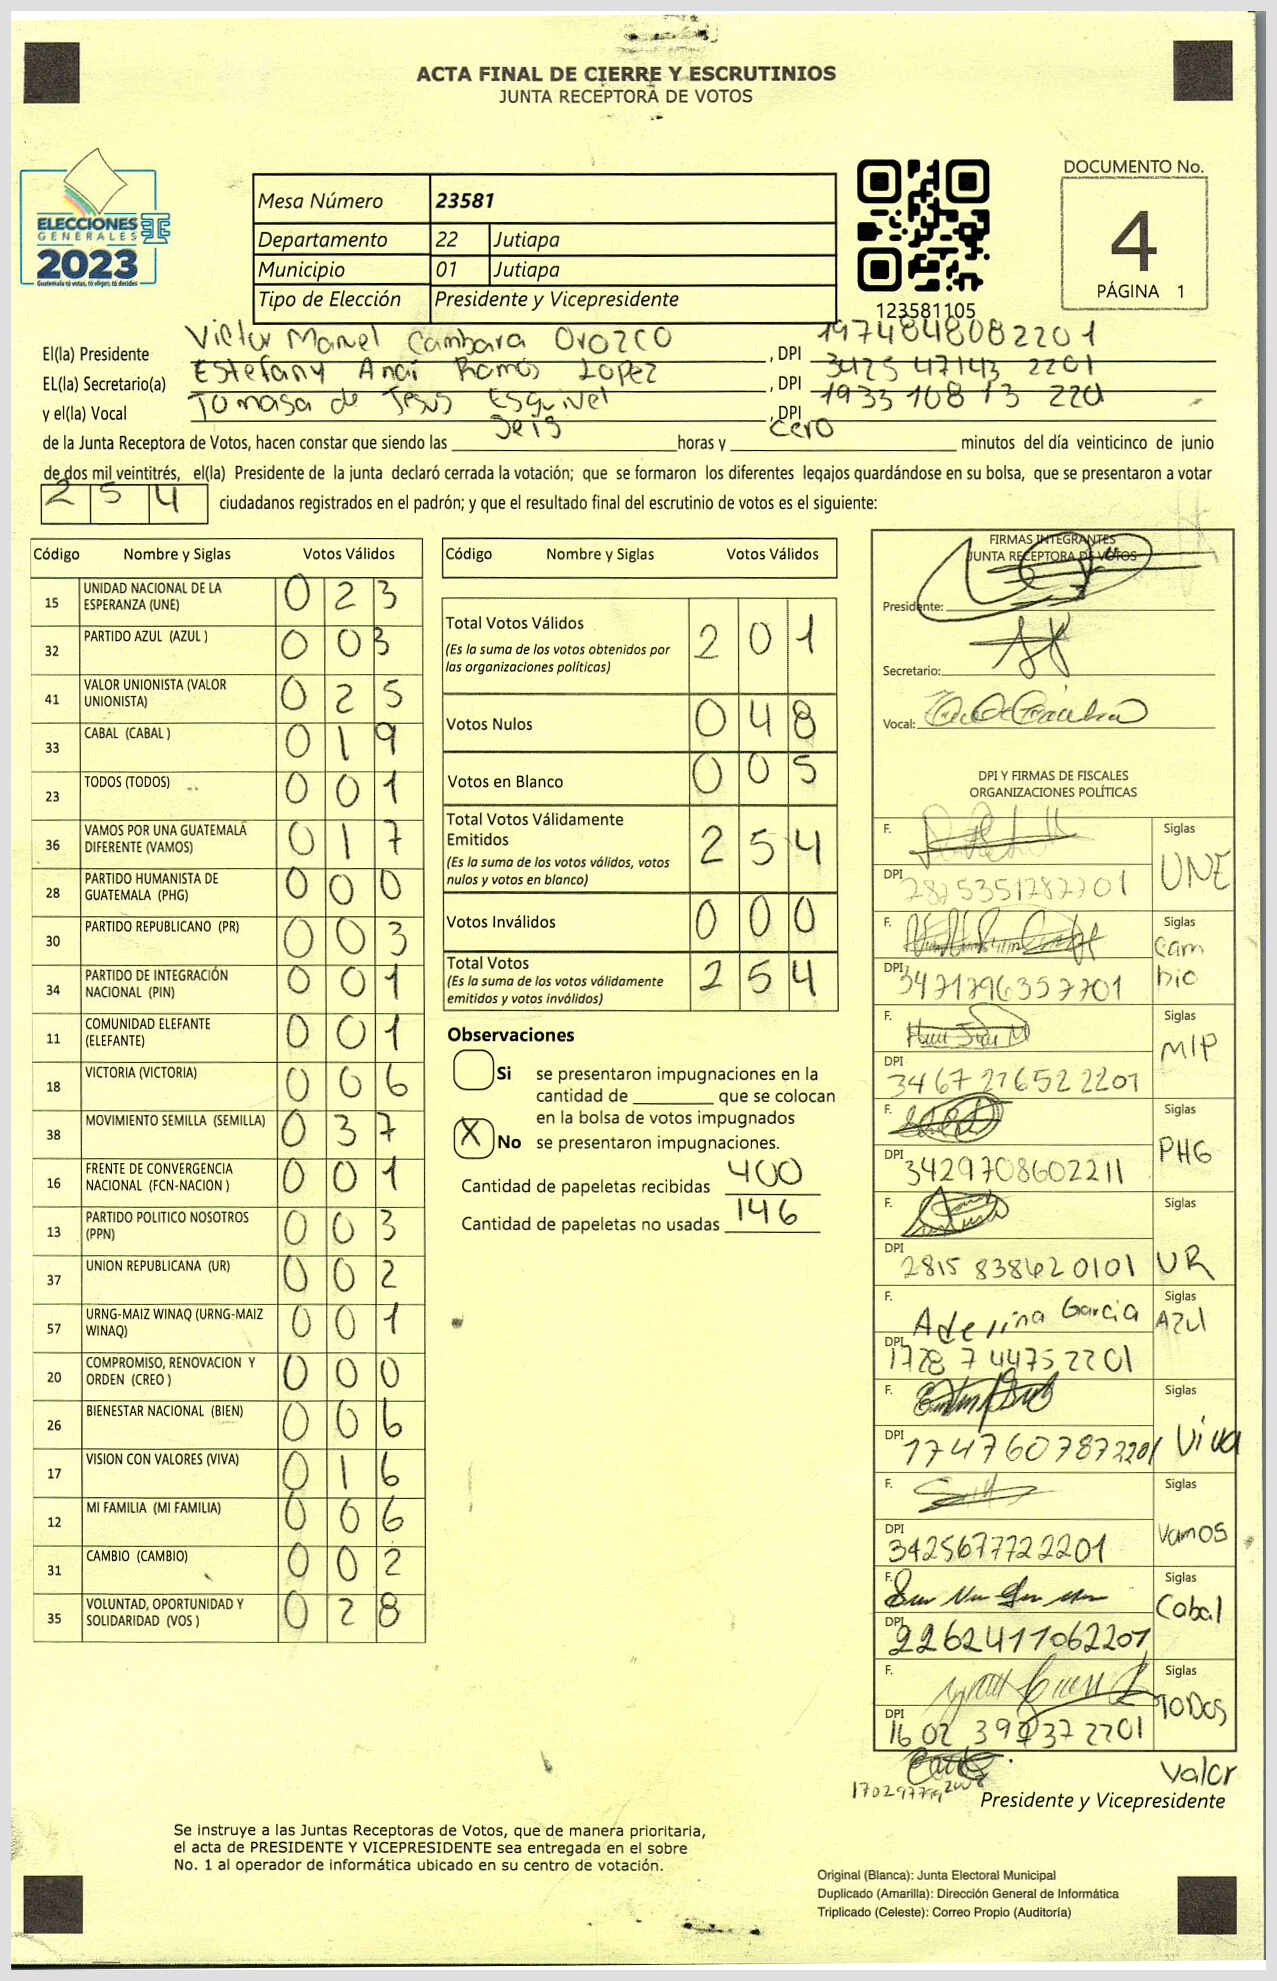 ACTA FINAL DE CIERRE Y ESCRUTINIOS
JUNTA RECEPTORA DE VOTOS
ELECCIONES
GENERALES
2023
Guatemala tú votas, tú eliges, tú decides
Mesa Número 23581
Departamento 22 Jutiapa
Municipio 01 Jutiapa
Tipo de Elección Presidente y Vicepresidente
123581105
DOCUMENTO No.
4
PÁGINA 1
El(la) Presidente Victor Manuel Cambara Orozco , DPI 1974848082201
EL(la) Secretario(a) Estefany Anaí Ramos Lopez , DPI 3425 47143 2201
y el(la) Vocal Tomasa de Jesus Esquivel , DPI 1933 108 13 220
de la Junta Receptora de Votos, hacen constar que siendo las seis horas y cero minutos del día veinticinco de junio
de dos mil veintitrés, el(la) Presidente de la junta declaró cerrada la votación; que se formaron los diferentes legajos guardándose en su bolsa, que se presentaron a votar
254 ciudadanos registrados en el padrón; y que el resultado final del escrutinio de votos es el siguiente:
Código Nombre y Siglas Votos Válidos
15 UNIDAD NACIONAL DE LA ESPERANZA (UNE) 0 2 3
32 PARTIDO AZUL (AZUL ) 0 0 3
41 VALOR UNIONISTA (VALOR UNIONISTA) 0 2 5
33 CABAL (CABAL ) 0 1 9
23 TODOS (TODOS) 0 0 1
36 VAMOS POR UNA GUATEMALA DIFERENTE (VAMOS) 0 1 7
28 PARTIDO HUMANISTA DE GUATEMALA (PHG) 0 0 0
30 PARTIDO REPUBLICANO (PR) 0 0 3
34 PARTIDO DE INTEGRACIÓN NACIONAL (PIN) 0 0 1
11 COMUNIDAD ELEFANTE (ELEFANTE) 0 0 1
18 VICTORIA (VICTORIA) 0 0 6
38 MOVIMIENTO SEMILLA (SEMILLA) 0 3 7
16 FRENTE DE CONVERGENCIA NACIONAL (FCN-NACION ) 0 0 1
13 PARTIDO POLITICO NOSOTROS (PPN) 0 0 3
37 UNION REPUBLICANA (UR) 0 0 2
57 URNG-MAIZ WINAQ (URNG-MAIZ WINAQ) 0 0 1
20 COMPROMISO, RENOVACION Y ORDEN (CREO ) 0 0 0
26 BIENESTAR NACIONAL (BIEN) 0 0 6
17 VISION CON VALORES (VIVA) 0 1 6
12 MI FAMILIA (MI FAMILIA) 0 0 6
31 CAMBIO (CAMBIO) 0 0 2
35 VOLUNTAD, OPORTUNIDAD Y SOLIDARIDAD (VOS ) 0 2 8
Código Nombre y Siglas Votos Válidos
Total Votos Válidos 2 0 1
(Es la suma de los votos obtenidos por
las organizaciones políticas)
Votos Nulos 0 4 8
Votos en Blanco 0 0 5
Total Votos Válidamente
Emitidos 2 5 4
(Es la suma de los votos válidos, votos
nulos y votos en blanco)
Votos Inválidos 0 0 0
Total Votos 2 5 4
(Es la suma de los votos válidamente
emitidos y votos inválidos)
Observaciones
Si se presentaron impugnaciones en la
cantidad de que se colocan
en la bolsa de votos impugnados
X No se presentaron impugnaciones.
Cantidad de papeletas recibidas 400
Cantidad de papeletas no usadas 146
FIRMAS INTEGRANTES
JUNTA RECEPTORA DE VOTOS
Presidente:
Secretario:
Vocal:
DPI Y FIRMAS DE FISCALES
ORGANIZACIONES POLÍTICAS
F. Siglas UNE
DPI 2875351782701
F. Siglas Cambio
DPI 3471796357701
F. Siglas MIP
DPI 3467 276522201
F. Siglas PHG
DPI 3429708602211
F. Siglas UR
DPI 2815 838620101
F. Adelina Garcia Siglas Azul
DPI 1728 7 44752201
F. Siglas Viva
DPI 1747607872201
F. Siglas Vamos
DPI 3425677722201
F. Siglas Cabal
DPI 2262411062201
F. Siglas TODOS
DPI 1602 39737 2201
Valor
Presidente y Vicepresidente
Se instruye a las Juntas Receptoras de Votos, que de manera prioritaria,
el acta de PRESIDENTE Y VICEPRESIDENTE sea entregada en el sobre
No. 1 al operador de informática ubicado en su centro de votación.
Original (Blanca): Junta Electoral Municipal
Duplicado (Amarilla): Dirección General de Informática
Triplicado (Celeste): Correo Propio (Auditoría)